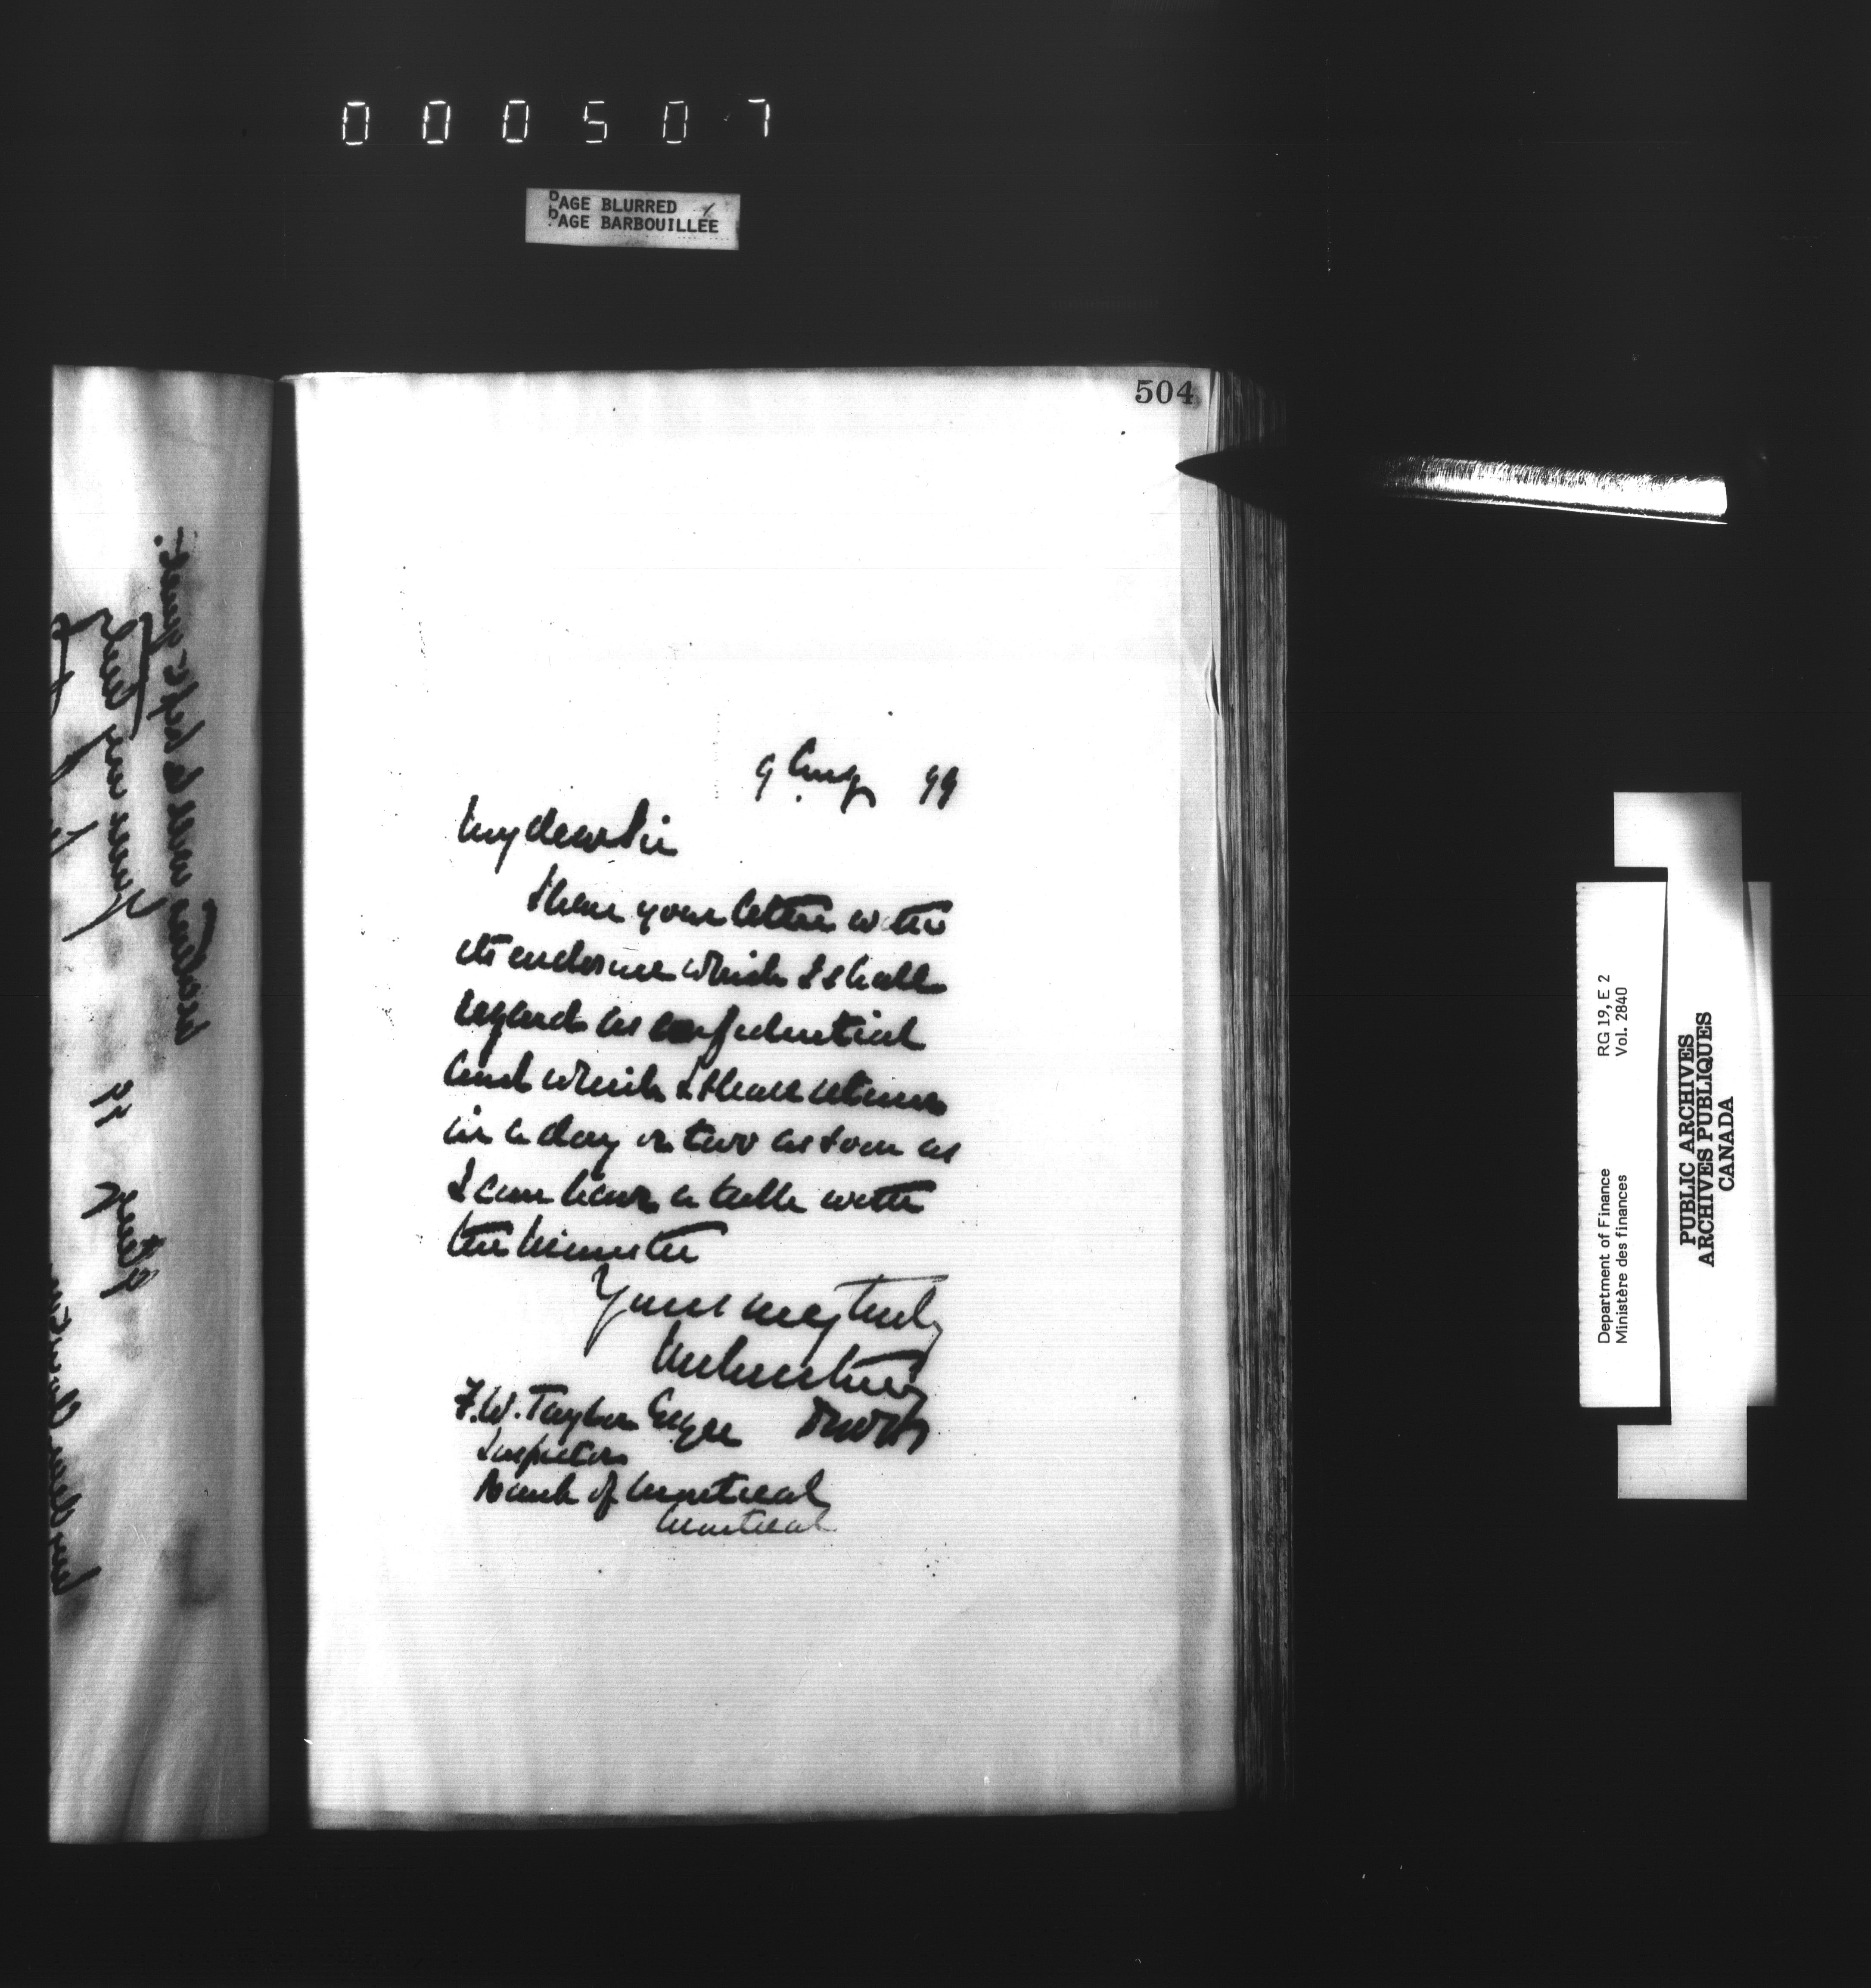 000507
PAGE BLURRED
PAGE BARBOUILLÉE
504
9 Aug 99
My dear Sir
I have your letter with
its enclosure which I shall
regard as confidential
and which I shall return
in a day or two as soon as
I can have a talk with
the Minister
Yours very truly
F.W. Taylor Esqre
Inspector
Bank of Montreal
Montreal
Department of Finance RG 19, E 2
Ministère des finances Vol. 2840
PUBLIC ARCHIVES
ARCHIVES PUBLIQUES
CANADA